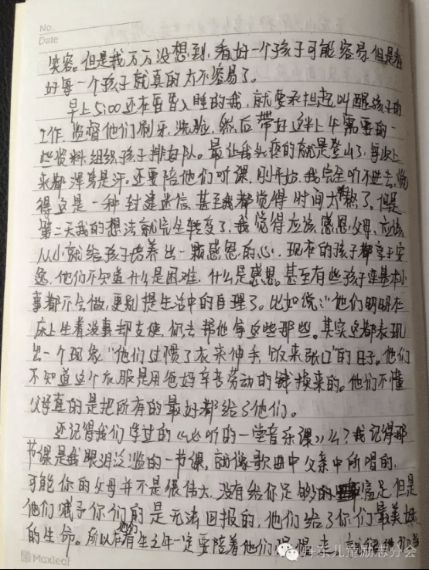 No
Date
笑容。但是我万万没想到,看好一个孩子可能容易但是看
好每一个孩子就真的太不容易了。
早上5:00还在要入睡的我,就要承担起叫醒孩子的
工作,监督他们刷牙、洗脸,然后带好这科上午需要的一
些资料,组织孩子排好队。最让我头疼的就是登山了,每次上
来都浑身是汗,还要陪他们听课,刚开始我完全听不进去,觉
得这是一种封建迷信,甚至我都觉得时间太了,但是
第二天我的想法就完全转变了,我觉得应该感恩父母,应该
从小就给孩子培养出一颗感恩的心,现在的孩子都享于安
逸,他们不知道什么是困难,什么是感恩。甚至有些孩子连基本小
事都不会做,更别提生活中的自理了。比如像:"他们明明在
床上坐着没事却支使何去帮他拿这些那些。其实这都表现
出一个现象"他们过惯了衣来伸手饭来张口"的日子。他们
不知道这个衣服是用爸妈辛苦劳动的钱换来的。他们不懂
父母真的是把所有的最好都给了他们。
还记得我们学过的《必听的一堂音乐课》么?我记得那
节课是我眼泪泛滥的一节课,就像歌曲中父亲中所唱的,
可能你的父母并不是很伟大,没有给你足够的信足但是
他们赋予你们的是无法回报的,他们给了你们最美好
的生命。所以在有生之年一定要陪着他们
Maxleaf
儿童励志分会